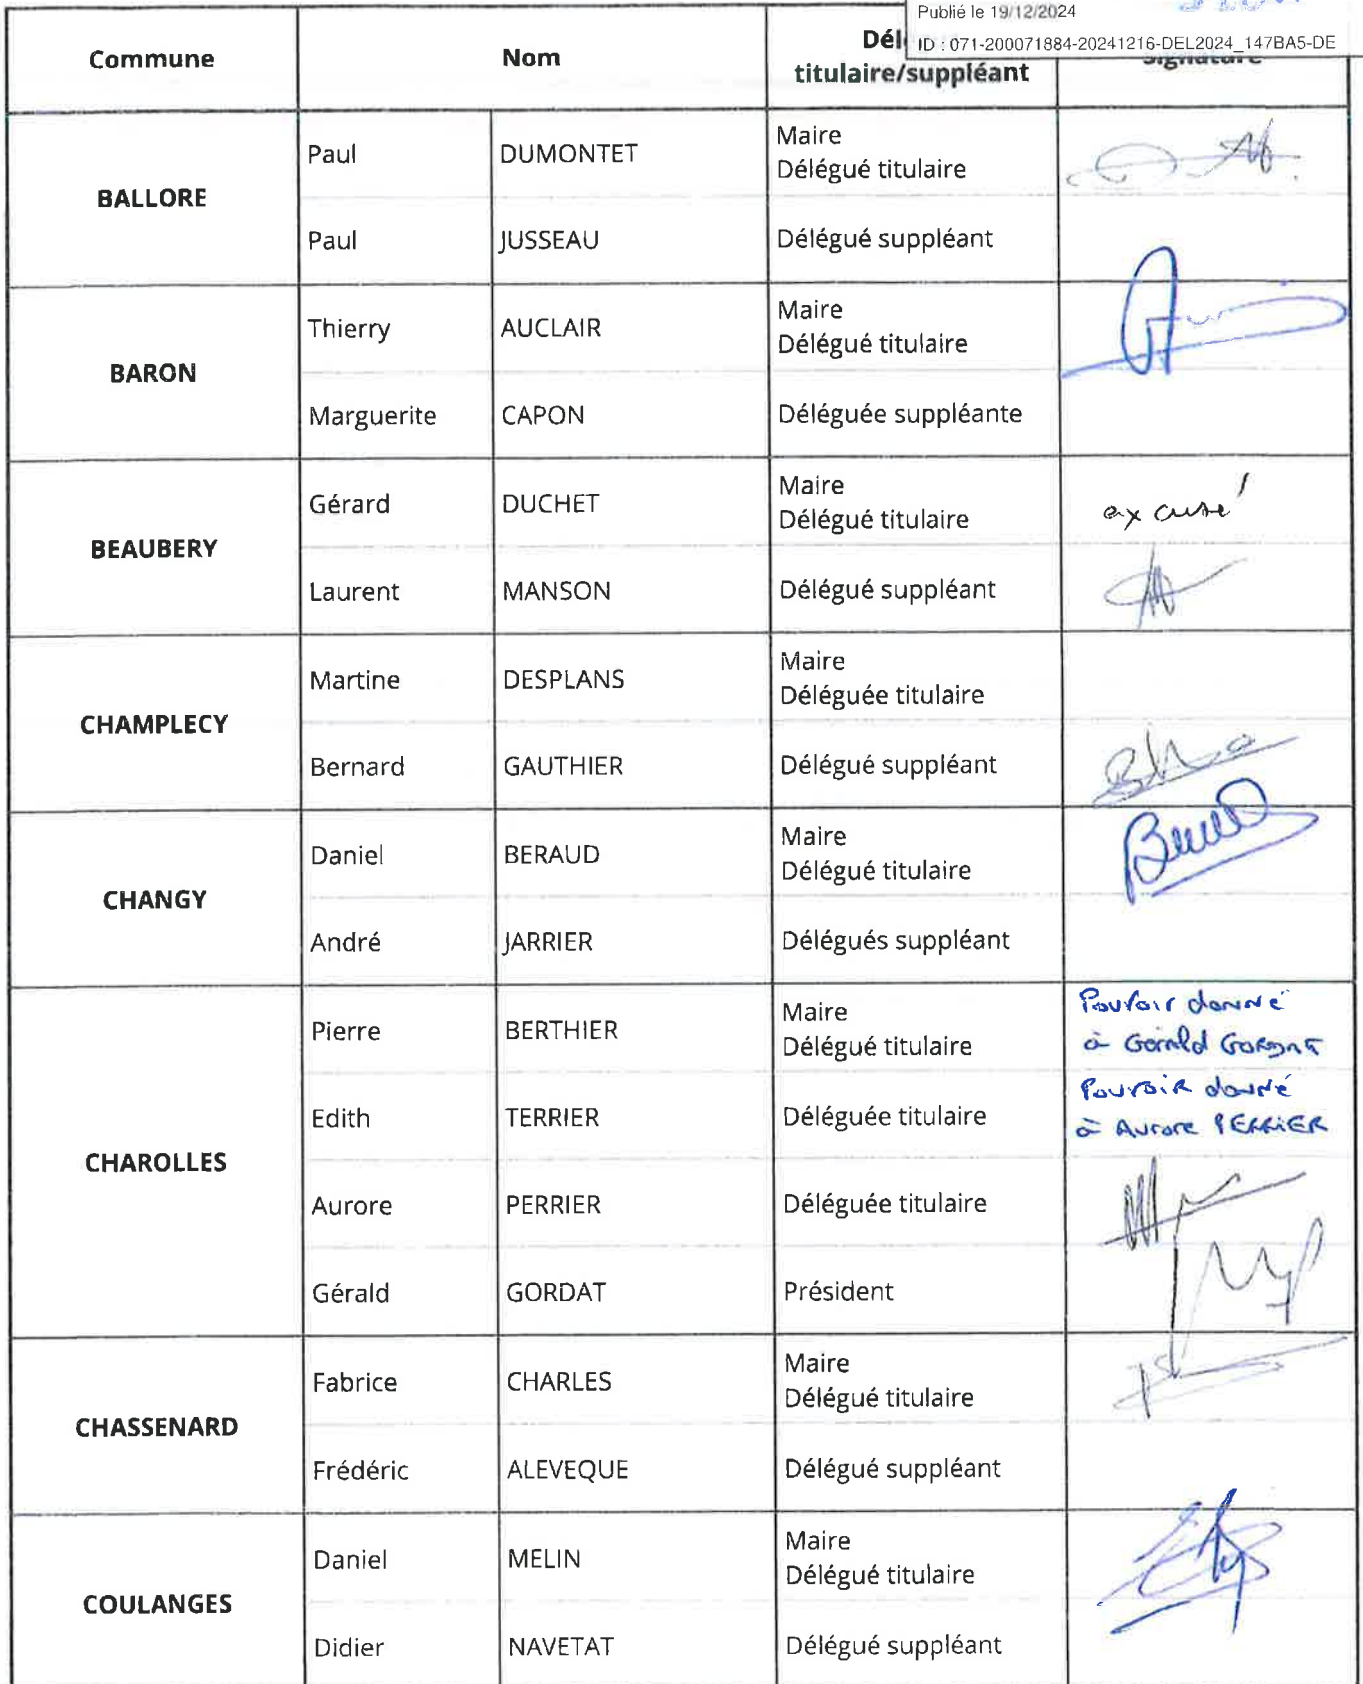 Publié le 19/12/2024
ID : 071-200071884-20241216-DEL2024_147BA5-DE
Commune
Nom
Dél
titulaire/suppléant
Signature
BALLORE
Paul
DUMONTET
Maire
Délégué titulaire
Paul
JUSSEAU
Délégué suppléant
BARON
Thierry
AUCLAIR
Maire
Délégué titulaire
Marguerite
CAPON
Déléguée suppléante
BEAUBERY
Gérard
DUCHET
Maire
Délégué titulaire
excusé
Laurent
MANSON
Délégué suppléant
CHAMPLECY
Martine
DESPLANS
Maire
Déléguée titulaire
Bernard
GAUTHIER
Délégué suppléant
CHANGY
Daniel
BERAUD
Maire
Délégué titulaire
André
JARRIER
Délégués suppléant
CHAROLLES
Pierre
BERTHIER
Maire
Délégué titulaire
Pouvoir donné
à Gérald GORDAT
Edith
TERRIER
Déléguée titulaire
Pouvoir donné
à Aurore PERRIER
Aurore
PERRIER
Déléguée titulaire
Gérald
GORDAT
Président
CHASSENARD
Fabrice
CHARLES
Maire
Délégué titulaire
Frédéric
ALEVEQUE
Délégué suppléant
COULANGES
Daniel
MELIN
Maire
Délégué titulaire
Didier
NAVETAT
Délégué suppléant